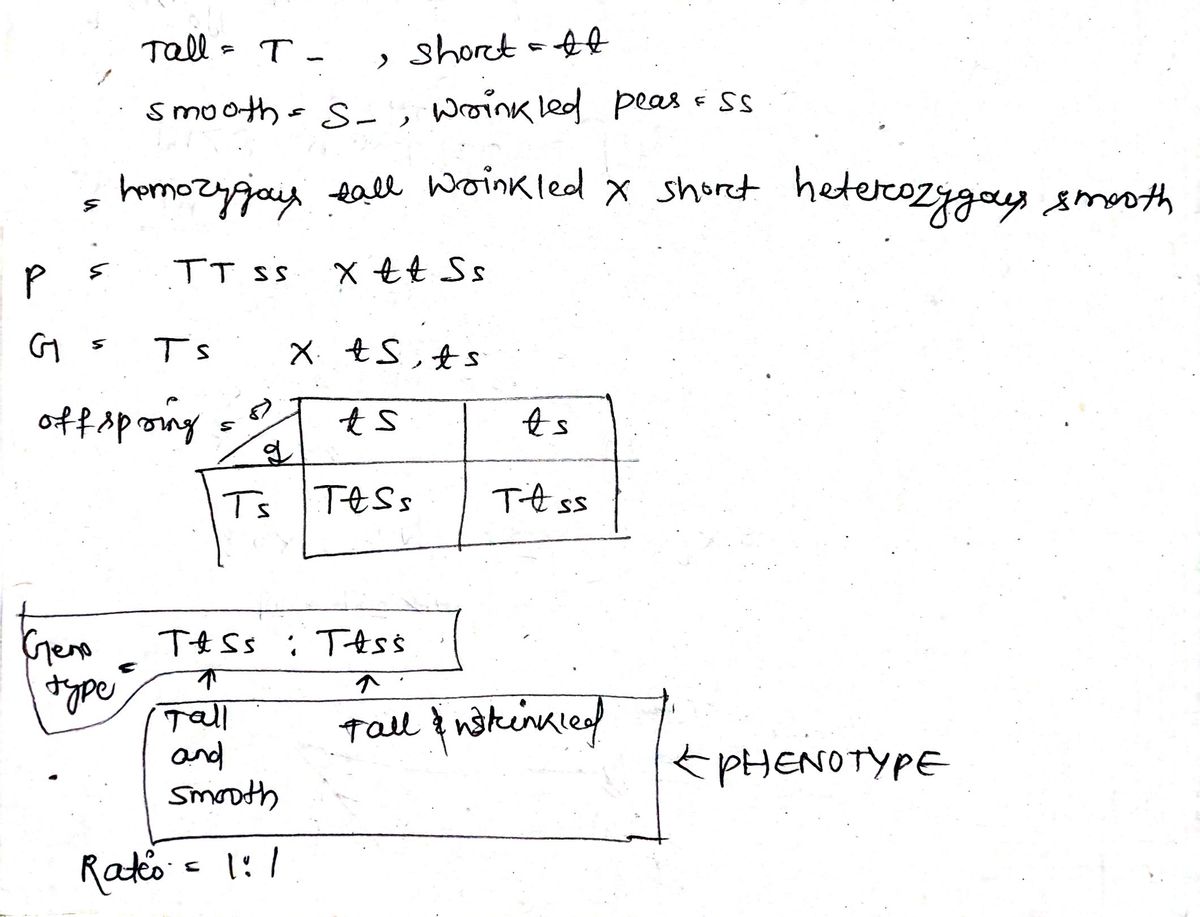 Tall = T - , short = tt
smooth = S - , wrinkled peas = ss
= homozygous tall wrinkled x short heterozygous smooth
P = TT ss x tt Ss
G = Ts x tS, ts
offspring =
tS ts
Ts TtSs Ttss
Geno type = TtSs : Ttss
↑ ↑
Tall and smooth
Tall & wrinkled
← PHENOTYPE
Ratio = 1:1